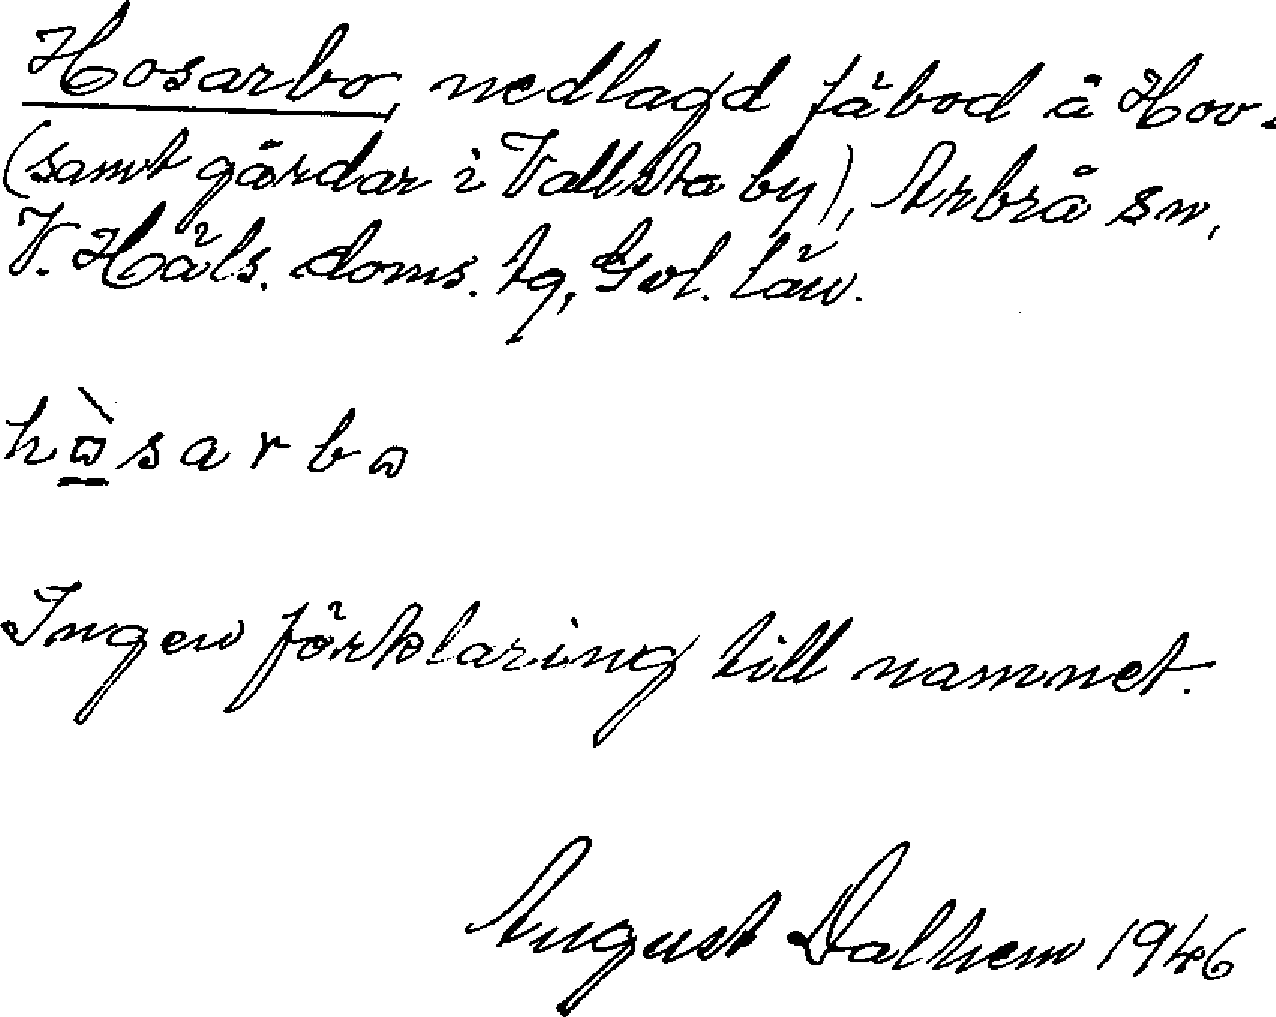 Hosarbo, nedlagd fäbod å Hov.
(samt gårdar i Vallsta by), Arbrå sn,
V. Häls. doms. tg, Gvl. län.
hὼsarbω
Ingen förklaring till namnet.
August Dalhem 1946